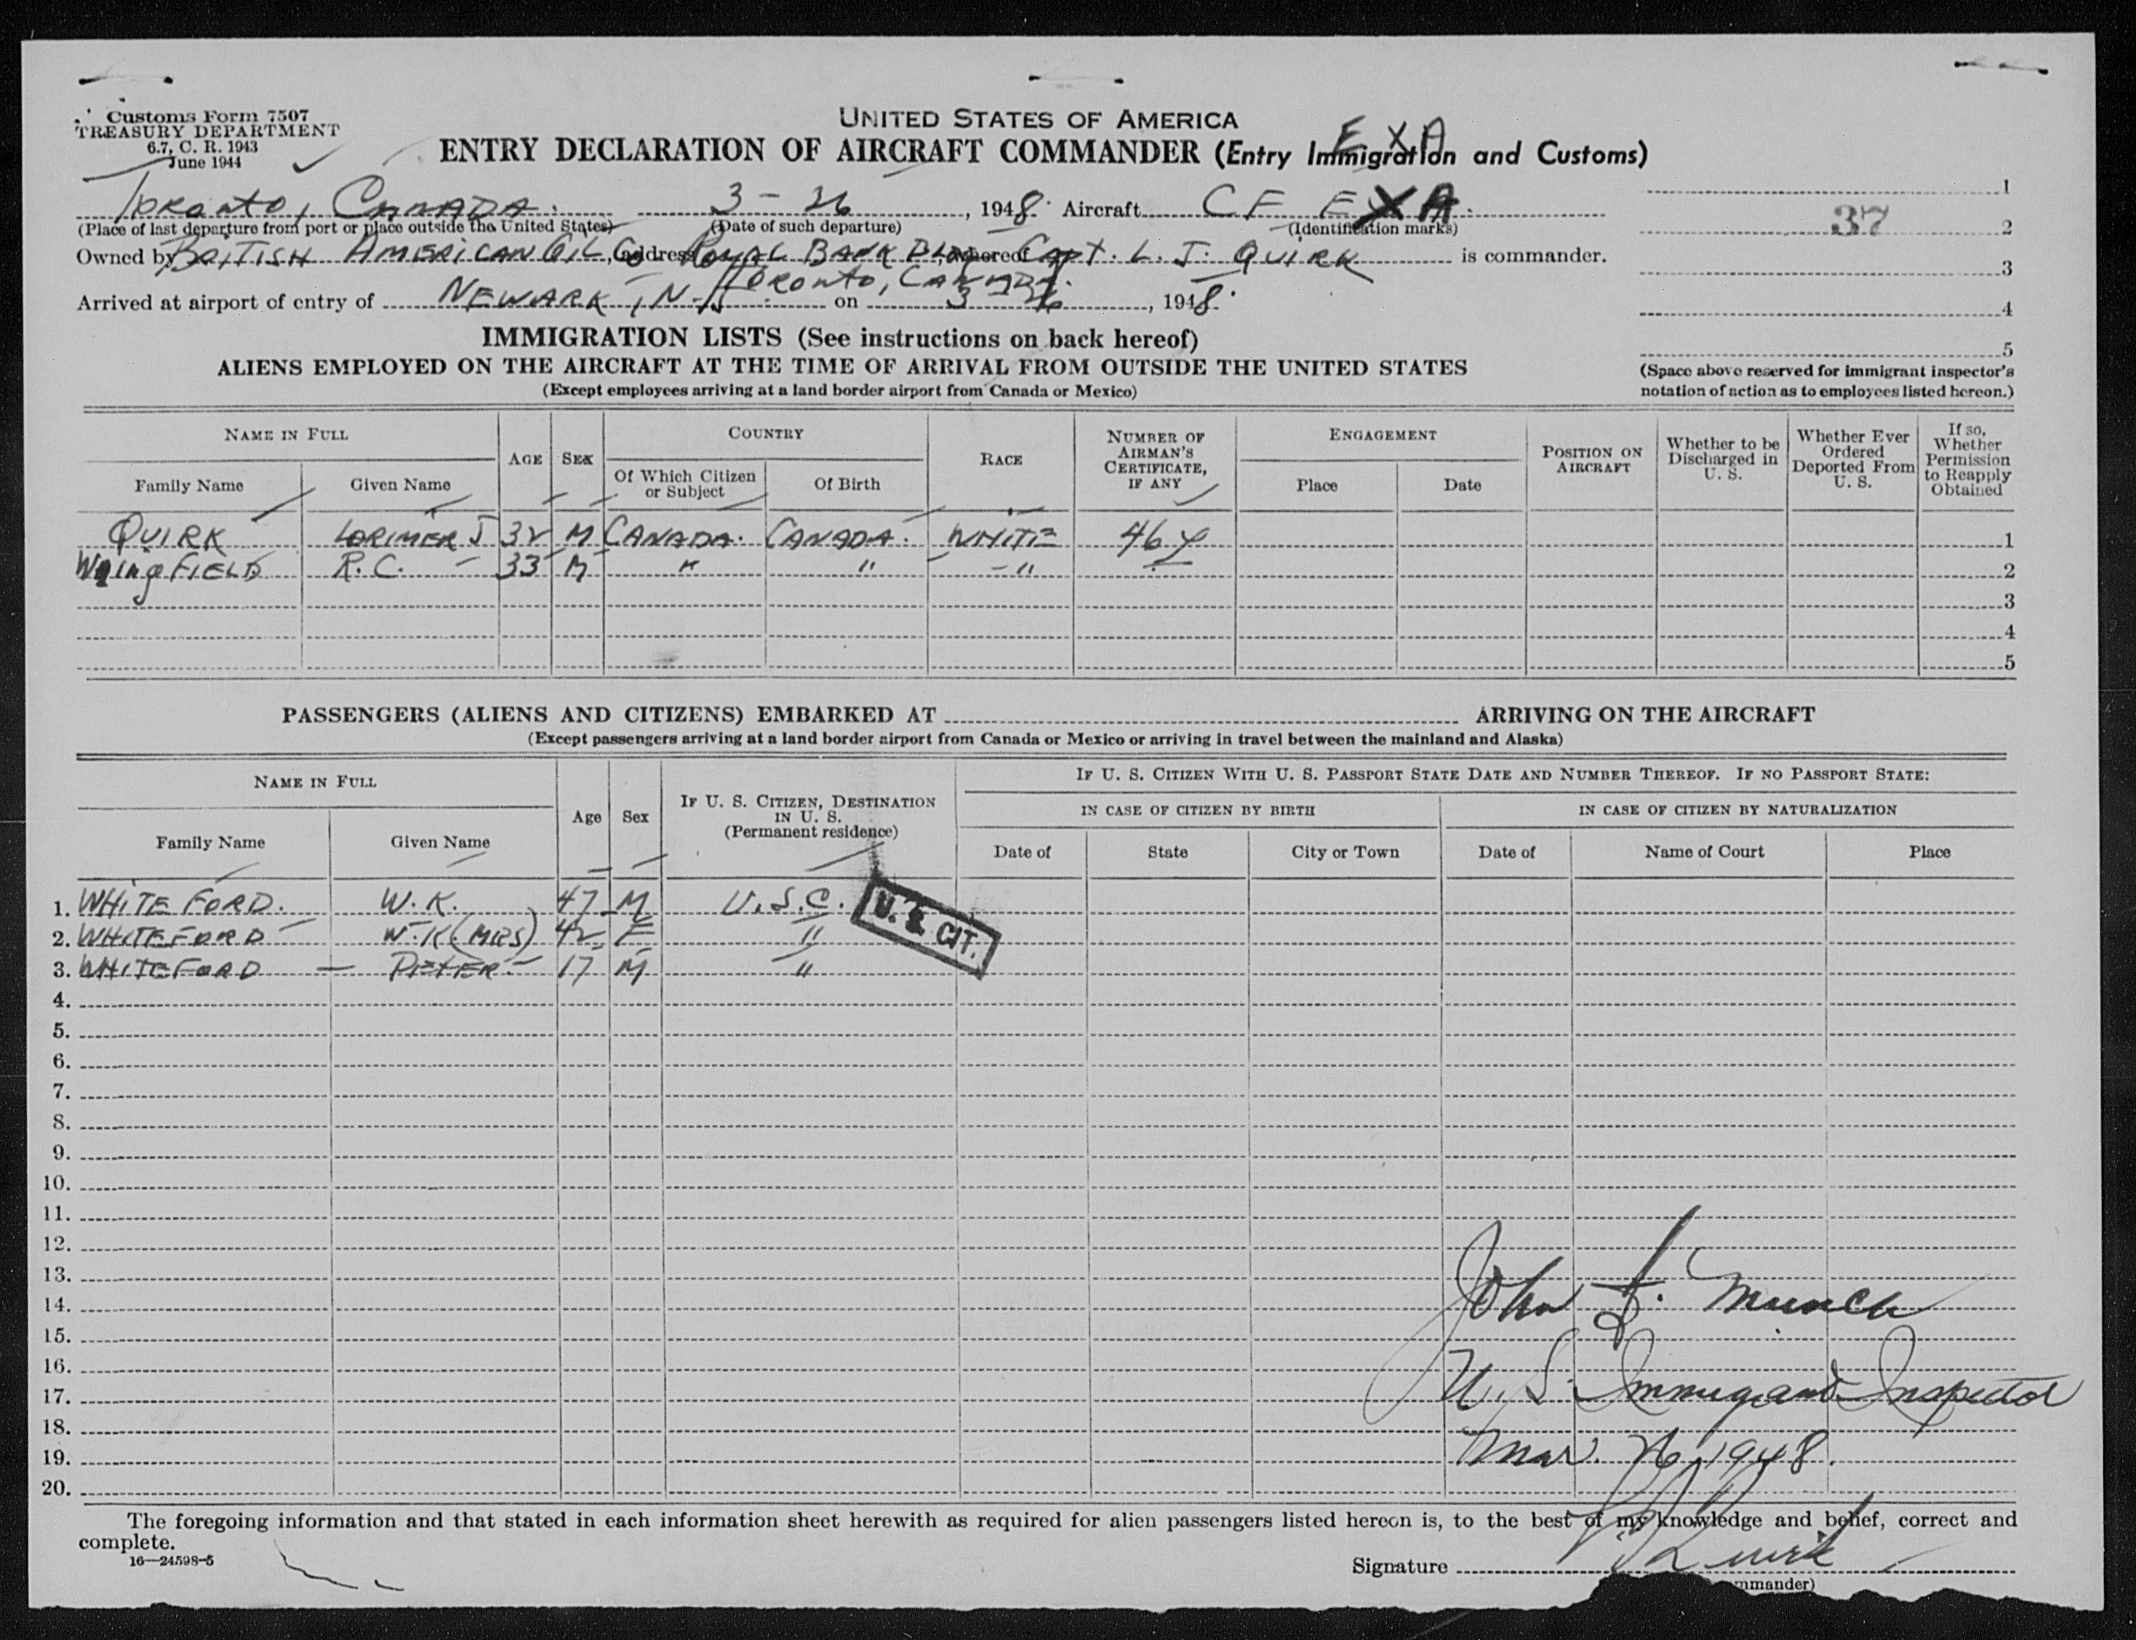 Customs Form 7507
TREASURY DEPARTMENT
6.7, C. R. 1943
June 1944
UNITED STATES OF AMERICA
ENTRY DECLARATION OF AIRCRAFT COMMANDER (Entry Immigration and Customs)
EXA
Toronto, CANADA. 3-26, 1948. Aircraft CF EXA.
(Place of last departure from port or place outside the United States) (Date of such departure) (Identification marks)
Owned by BRITISH AMERICAN OIL Co, address ROYAL BANK BLDG, whereof CAPT. L. J. QUIRK is commander.
TORONTO, CANADA.
Arrived at airport of entry of NEWARK, N.J. on 3-26, 1948.
1
37 2
3
4
5
(Space above reserved for immigrant inspector's
notation of action as to employees listed hereon.)
IMMIGRATION LISTS (See instructions on back hereof)
ALIENS EMPLOYED ON THE AIRCRAFT AT THE TIME OF ARRIVAL FROM OUTSIDE THE UNITED STATES
(Except employees arriving at a land border airport from Canada or Mexico)
NAME IN FULL
Family Name Given Name
AGE
SEX
COUNTRY
Of Which Citizen
or Subject
Of Birth
RACE
NUMBER OF
AIRMAN'S
CERTIFICATE,
IF ANY
ENGAGEMENT
Place Date
POSITION ON
AIRCRAFT
Whether to be
Discharged in
U. S.
Whether Ever
Ordered
Deported From
U. S.
If so,
Whether
Permission
to Reapply
Obtained
QUIRK LORIMER J 32 M CANADA. CANADA. WHITE 464 1
WingFIELD R.C. 33 M " " " 2
3
4
5
PASSENGERS (ALIENS AND CITIZENS) EMBARKED AT ARRIVING ON THE AIRCRAFT
(Except passengers arriving at a land border airport from Canada or Mexico or arriving in travel between the mainland and Alaska)
NAME IN FULL
Family Name Given Name
Age
Sex
IF U. S. CITIZEN, DESTINATION
IN U. S.
(Permanent residence)
IF U. S. CITIZEN WITH U. S. PASSPORT STATE DATE AND NUMBER THEREOF. IF NO PASSPORT STATE:
IN CASE OF CITIZEN BY BIRTH IN CASE OF CITIZEN BY NATURALIZATION
Date of State City or Town Date of Name of Court Place
1. WHITEFORD. W.K. 47 M U.S.C.
2. WHITEFORD W.K (MRS) 42 F "
3. WHITEFORD PETER. 17 M "
U. S. CIT.
4.
5.
6.
7.
8.
9.
10.
11.
12.
13.
14.
15.
16.
17.
18.
19.
20.
John F. Munch
U. S. Immigrant Inspector
Mar. 26, 1948.
The foregoing information and that stated in each information sheet herewith as required for alien passengers listed hereon is, to the best of my knowledge and belief, correct and
complete.
16—24598-5
Signature L J Quirk
mmander)